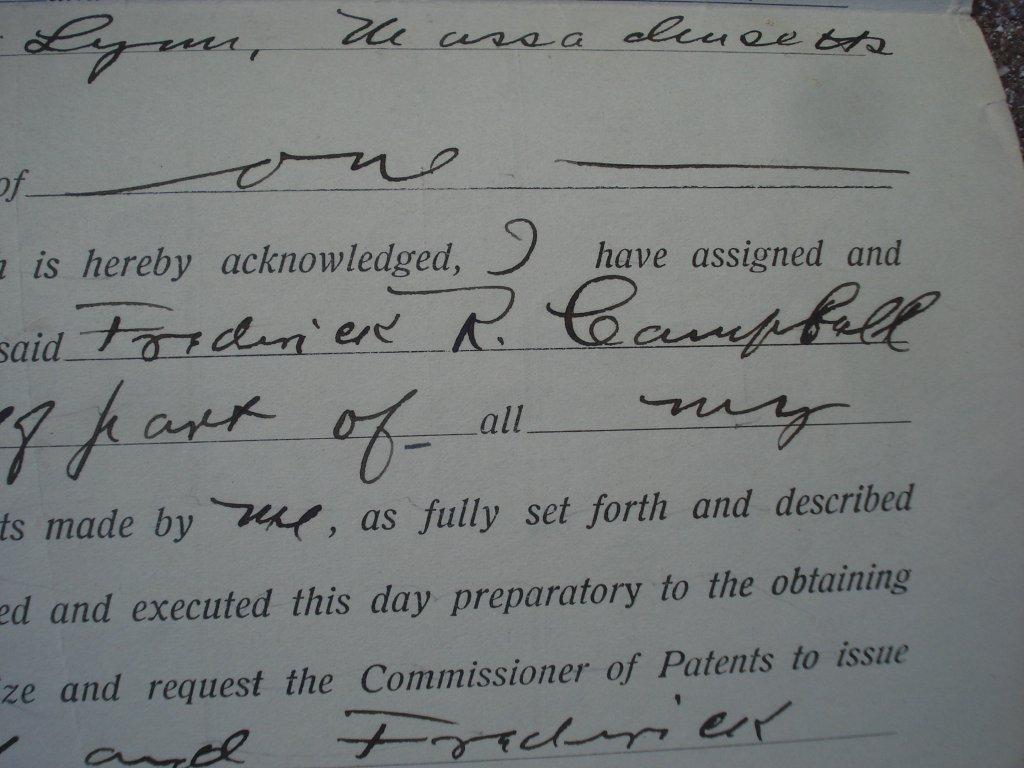 Lynn, Massachusetts
of one
is hereby acknowledged, I have assigned and
said Frederick R. Campbell
part of all my
ts made by me, as fully set forth and described
ed and executed this day preparatory to the obtaining
ze and request the Commissioner of Patents to issue
and Frederick